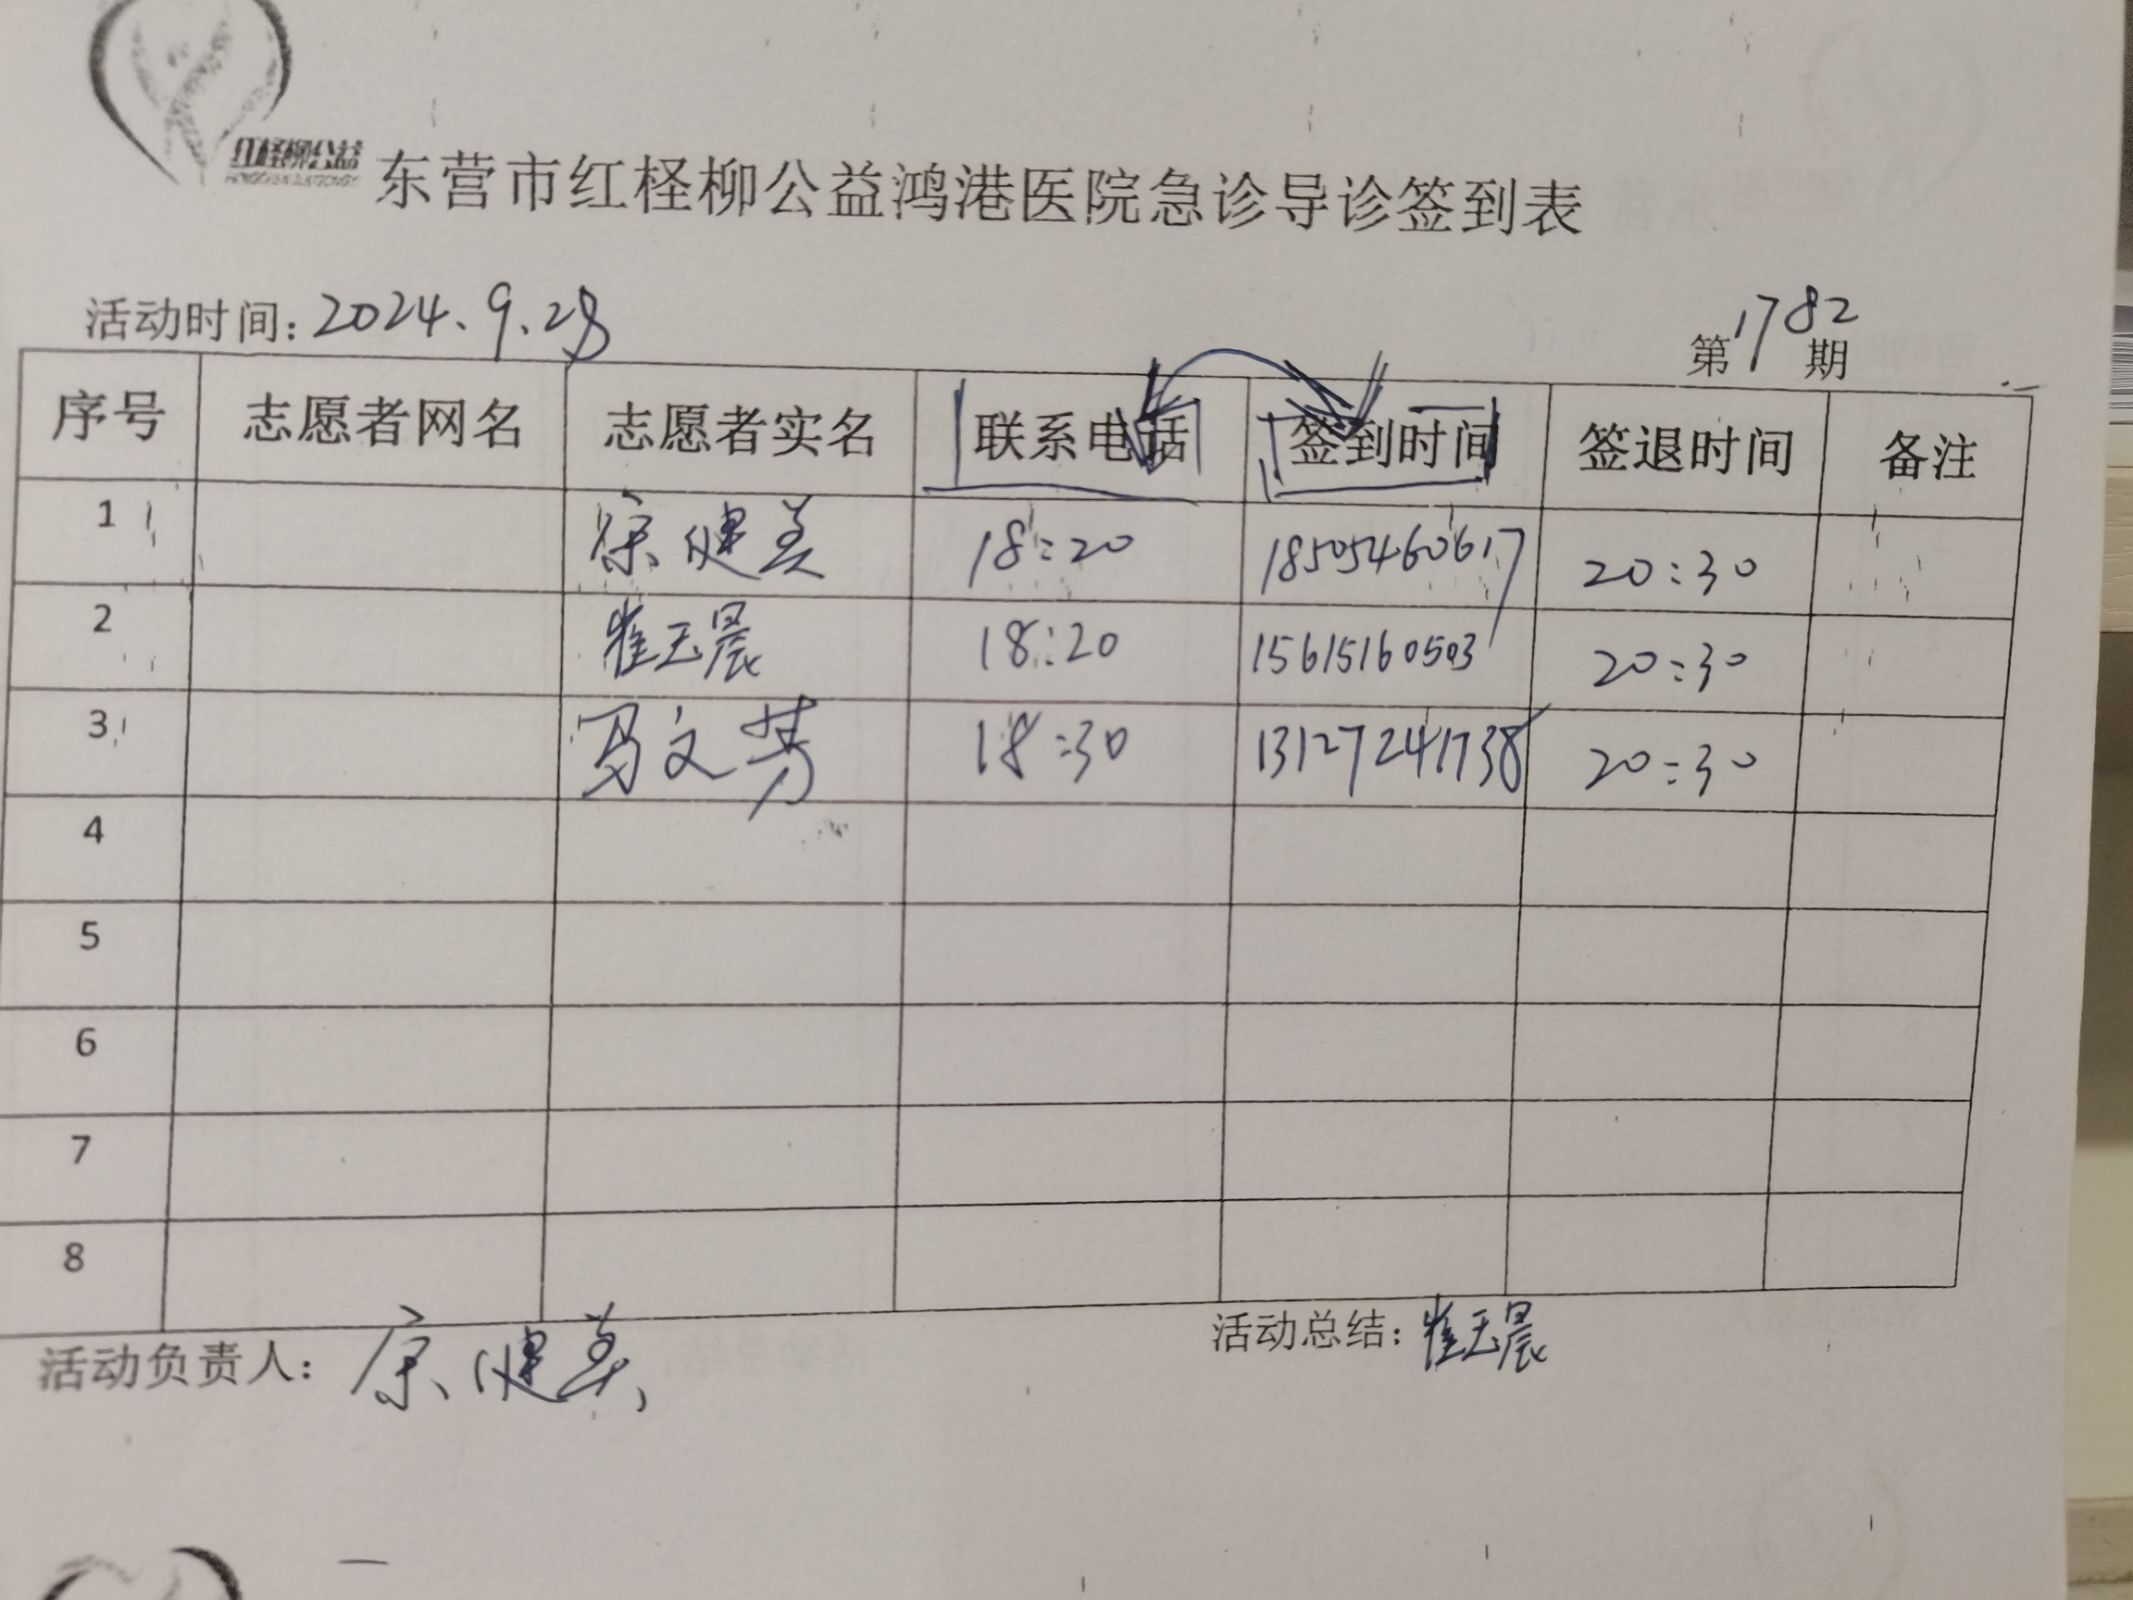 红柽柳公益
东营市红柽柳公益鸿港医院急诊导诊签到表
活动时间：2024.9.28
第1782期
序号 志愿者网名 志愿者实名 联系电话 签到时间 签退时间 备注
1 健美 18:20 18505460617 20:30
2 崔玉晨 18:20 15615160503 20:30
3 马文芳 18:30 13127241738 20:30
4
5
6
7
8
活动负责人：健美
活动总结：崔玉晨